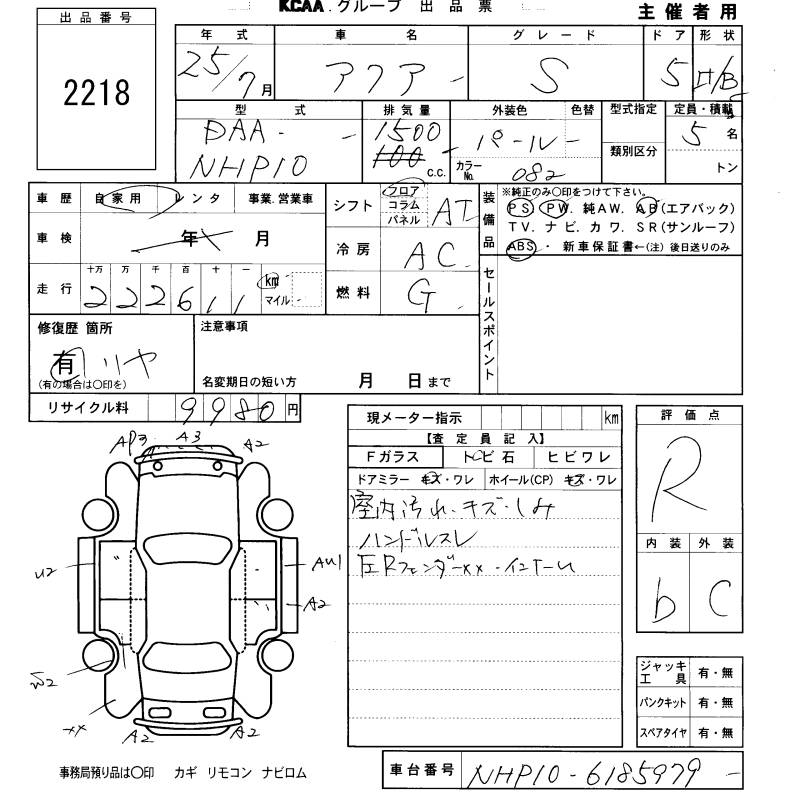 KCAA.グループ 出品票 主催者用
出品番号
2218
年式 車名 グレード ドア 形状
25/7月 アクア - S 5 H/B
型式 排気量 外装色 色替 型式指定 定員・積載
DAA- - 1500 パール - 5名
NHP10 100 c.c. カラーNo. 082 類別区分 トン
車歴 自家用 レンタ 事業.営業車
シフト フロア コラム パネル AT
装備品 ※純正のみ〇印をつけて下さい。
PS PW. 純AW. AB(エアバック)
TV. ナビ. カワ. SR(サンルーフ)
ABS・ 新車保証書←(注) 後日送りのみ
車検 年 月
冷房 AC
走行 十万 万 千 百 十 一
222611 km マイル
燃料 G
セールスポイント
修復歴 箇所 注意事項
有 リヤ
(有の場合は〇印を) 名変期日の短い方 月 日まで
リサイクル料 9980円
現メーター指示 km
【査定員記入】
Fガラス トビ石 ヒビワレ
ドアミラー キズ・ワレ ホイール(CP) キズ・ワレ
室内汚れ・キズ・しみ
ハンドルスレ
評価点
R
内装 外装
b C
AP3 A3 A2
U2 AU1
A2
W2
XX
A2 A2
ジャッキ工具 有・無
パンクキット 有・無
スペアタイヤ 有・無
事務局預り品は〇印 カギ リモコン ナビロム
車台番号 NHP10-6185979 -